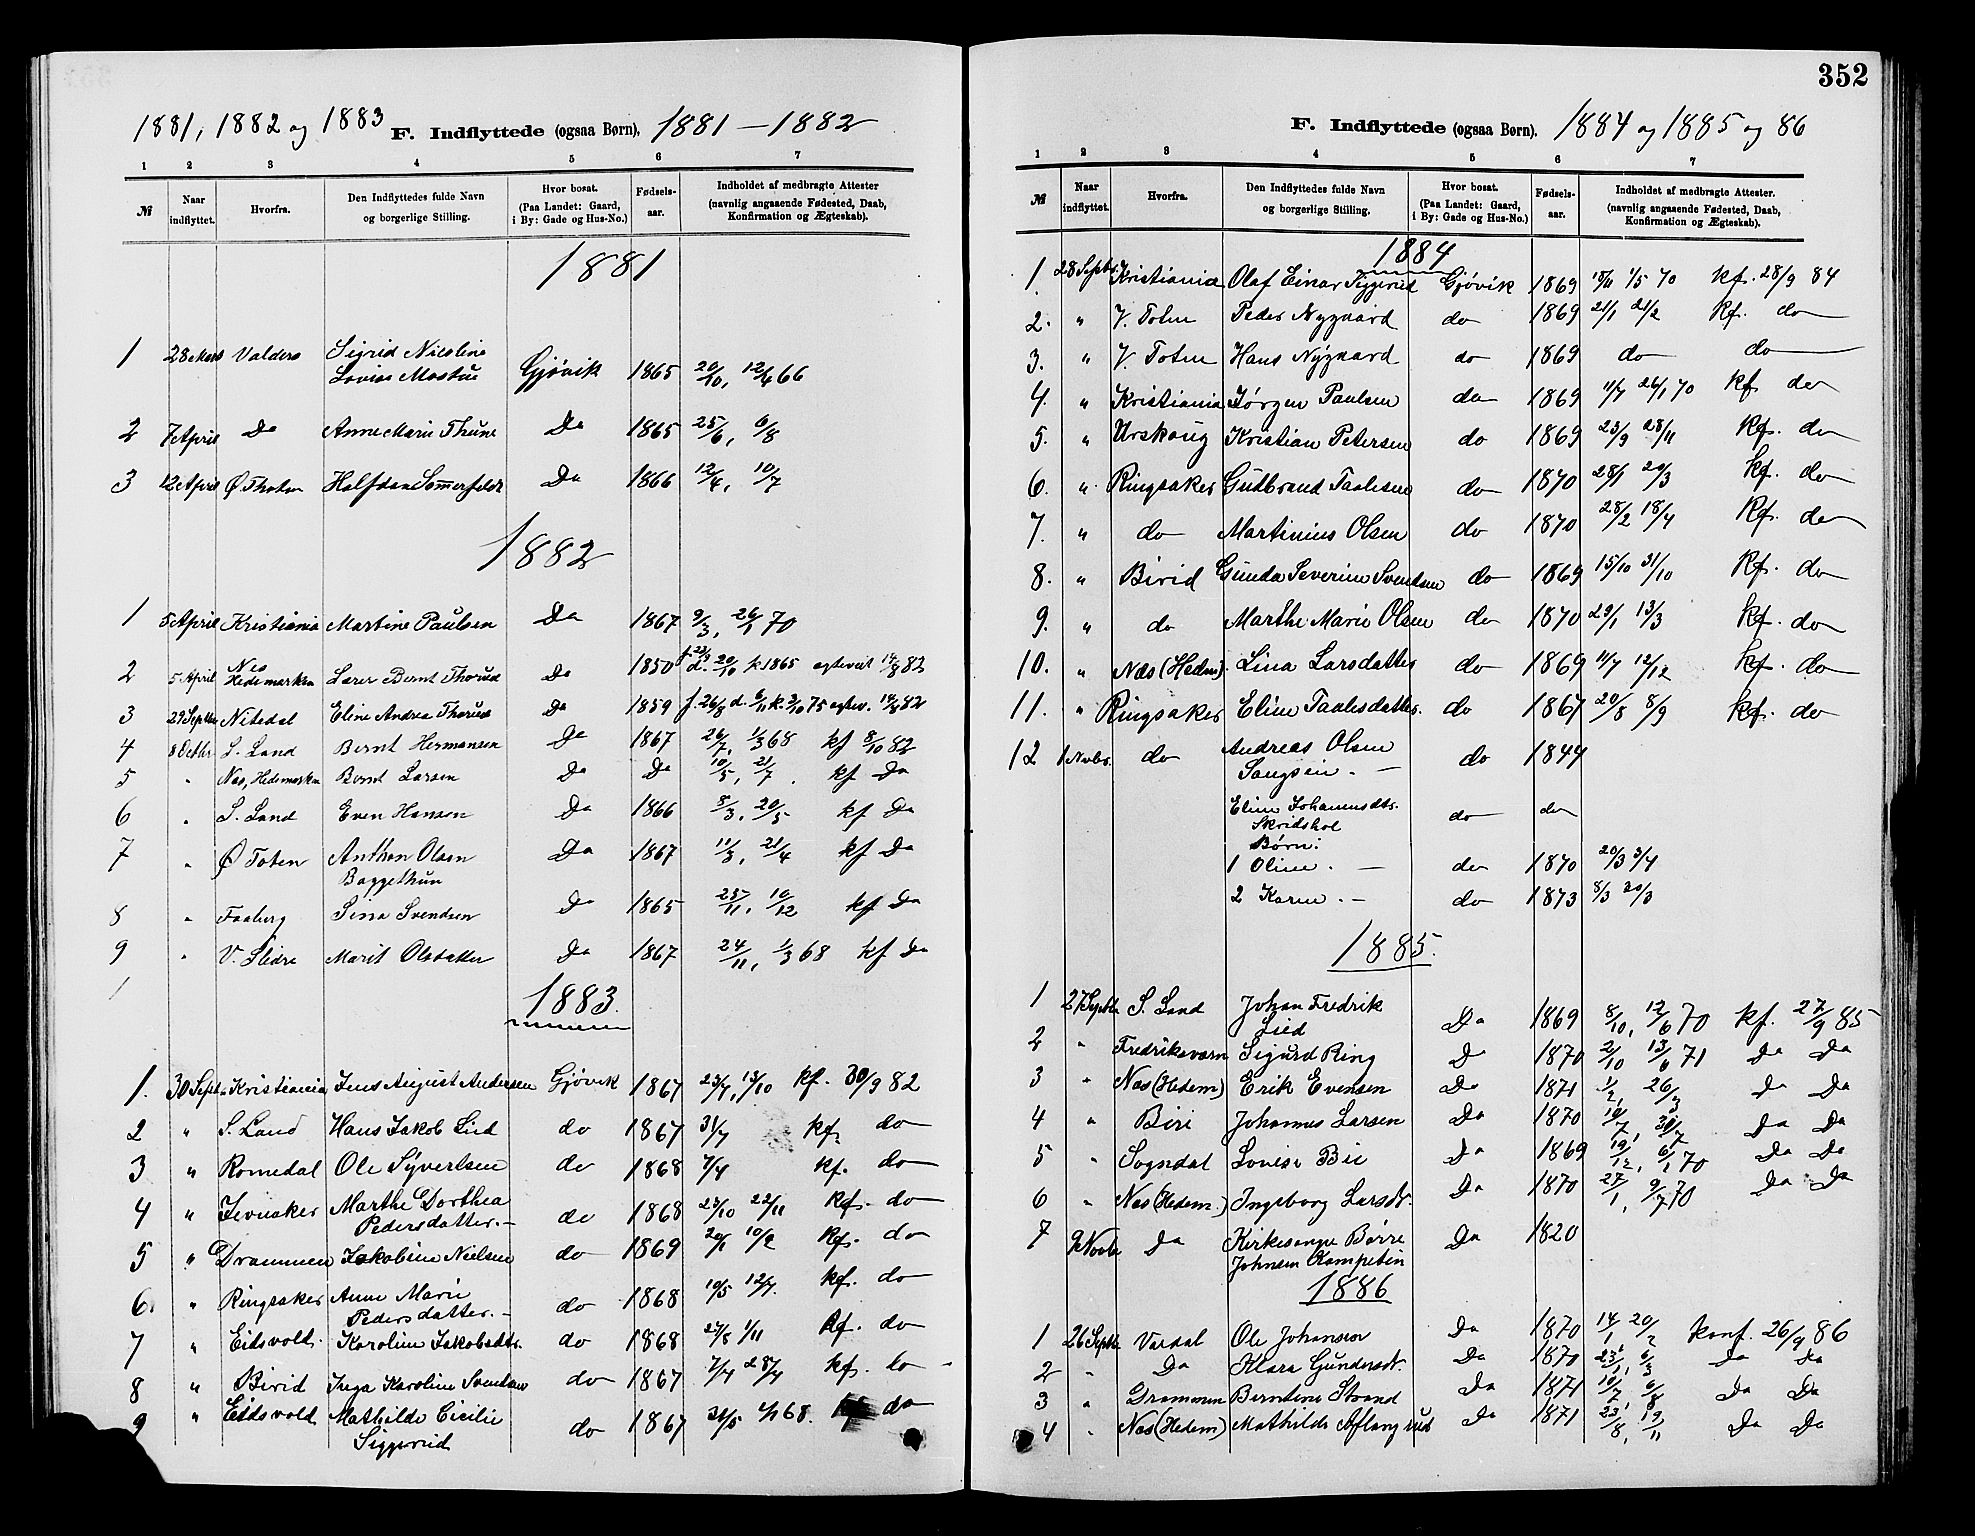 1881, 1882 og 1883 F. Indflyttede (ogsaa Børn), 1881 — 1882
1 2 3 4 5 6 7
№ Naar indflyttet. Hvorfra. Den Indflyttedes fulde Navn og borgerlige Stilling. Hvor bosat. (Paa Landet: Gaard, i By: Gade og Hus-No.) Fødsels-aar. Indholdet af medbragte Attester (navnlig angaaende Fødested, Daab, Konfirmation og Ægteskab).
1881
1 28 Mars Valders Sigrid Nicoline
Lovise Mostue Gjøvik 1865 20/10, 12/4 66
2 7 April Do Anne Marie Thune Do 1865 25/6, 6/8
3 12 April Ø. Thoten Halfdan Sommerfeldt Do 1866 12/4, 10/7
1882
1 5 April Kristiania Martine Paulsen Do 1867 9/3, 26/1 70
2 5 April Nes Hedemarken Lærer Bernt Thorud Do 1850 d. 20/10 k 1865 egteviet 14/8 82
3 29 Septbr Nitedal Eline Andrea Thorud Do 1859 f. 26/8 d. 6/11 k. 3/10 75 egtev. 14/8 82
4 8 Octbr S. Land Bernt Hermansen Do 1867 26/7, 1/3 68 kf 8/10 82
5 " Næs, Hedemarken Bernt Larsen Do Do 10/5, 21/7 kf Do
6 " S. Land Even Hansen Do 1866 8/3, 20/5 kf Do
7 " Ø Toten Anthon Olsen
Baggethun Do 1867 11/3, 21/4 kf Do
8 " Faaberg Sina Svendsen Do 1865 25/11, 10/12 kf Do
9 " V. Slidre Marit Olsdatter Do 1867 24/11, 1/3 68 kf Do
1883.
1. 30 Sept. Kristiania Jens August Andersen Gjøvik 1867 23/7, 13/10 kf. 30/9 82
2 " S. Land Hans Jakob Lied do 1867 31/7 kf. do
3 " Romedal Ole Syvertsen do 1868 7/4 kf. do
4 " Jevnaker Marthe Dorthea
Pedersdatter. – do 1868 23/10 22/11 kf. do
5 " Drammen Jakobine Nielsen do 1869 20/1 10/2 kf. do
6. " Ringsaker Anne Marie
Pedersdatter. – do 1868 10/5 12/7. kf. do
7 " Eidsvold. Karoline Jakobsdtr. do 1868 27/8 1/11 kf. do
8 " Birid Inga Karoline Svendsen do 1867 7/4 28/4 kf. do
9 " Eidsvold Mathilde Cicilie
Siggerud do 1867 31/5 1/1 68. do
352
F. Indflyttede (ogsaa Børn). 1884 og 1885 og 86
1 2 3 4 5 6 7
№ Naar indflyttet. Hvorfra. Den Indflyttedes fulde Navn og borgerlige Stilling. Hvor bosat. (Paa Landet: Gaard, i By: Gade og Hus-No.) Fødsels-aar. Indholdet af medbragte Attester. (navnlig angaaende Fødested, Daab, Konfirmation og Ægteskab).
1884
1. 28 Septbr. Kristiania Olaf Einar Siggerud Gjøvik 1869 18/11 1/5 70 kf. 28/9 84
2. " V. Toten Peder Nygaard do 1869 21/1 21/2 kf. do
3. " V. Toten Hans Nygaard do 1869 do do
4. " Kristiania Jørgen Paulsen do 1869 11/7 26/1 70 kf do
5. " Urskoug Kristian Petersen do 1869 23/9 28/11 kf. do
6. " Ringsaker Gudbrand Paulsen do 1870 28/1 20/3 kf. do
7. " do Martinius Olsen do 1870 28/2 18/4 kf. do
8. " Birid Gunda Severine Svendsen do 1869 15/10 31/10 kf. do
9. " do Marthe Marie Olsen do 1870 29/1 13/3 kf. do
10. " Næs (Hedem) Lina Larsdatter do 1869 11/7 12/12 kf. do
11. " Ringsaker Eline Paalesdatter. do 1867 20/8 8/9 kf. do
12 1 Novbr. do Andreas Olsen do 1844
Eline Johannesdtr. do do
Skridshol
Børn:
1 Oline. – do 1870 20/3 3/4
2 Karen. – do 1873 8/3 30/3
1885.
1 27 Septbr S. Land Johan Fredrik
Lied Do 1869 8/10, 12/6 70 kf. 27/9 85
2 " Fredriksværn Sigurd Ring Do 1870 2/10 13/6 71 Do Do
3 " Næs (Hedem) Erik Evensen Do 1871 1/2, 26/3 Do Do
4 " Biri Johannes Larsen Do 1870 10/7, 31/7 Do Do
5 " Sogndal Lovise Bie Do 1869 19/12, 6/1 70 Do Do
6 " Næs (Hedem.) Ingeborg Larsdr. Do 1870 27/1, 9/7 70 Do Do
7 9 Novbr Do Kirkesanger Børre
Johnsen Do 1820
1886
1 26 Septbr Vardal Ole Johansen Do 1870 14/1 20/2 konf. 26/9 86
2 " Do Klara Gundersdr. Do 1870 23/1, 6/3 Do Do
3 " Drammen Berntine Strand Do 1871 10/7, 6/8 Do Do
4 " Næs (Hedem) Mathilde Aflangrud Do 1871 23/8, 19/11 Do Do